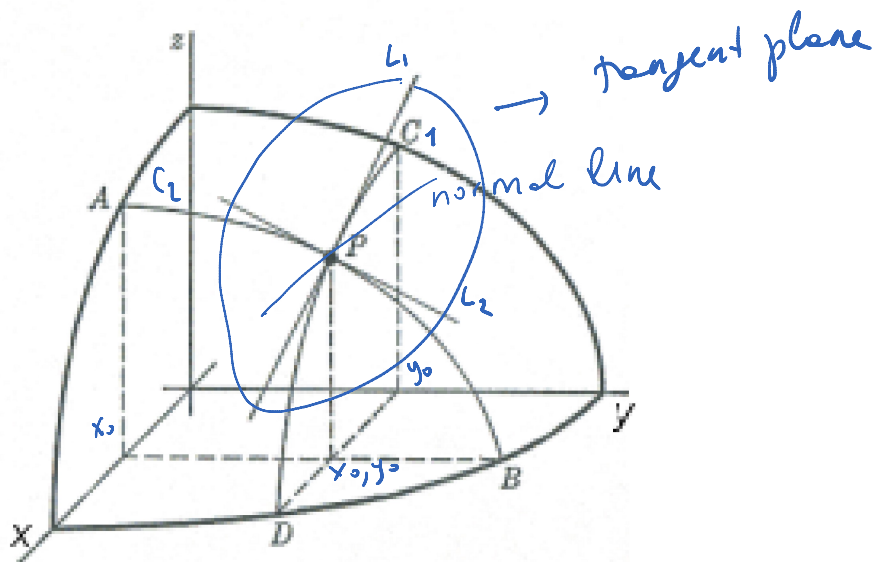 z
L₁
→ tangent plane
C₁
normal line
A
C₂
P
L₂
y₀
y
x₀
x₀, y₀
B
X
D